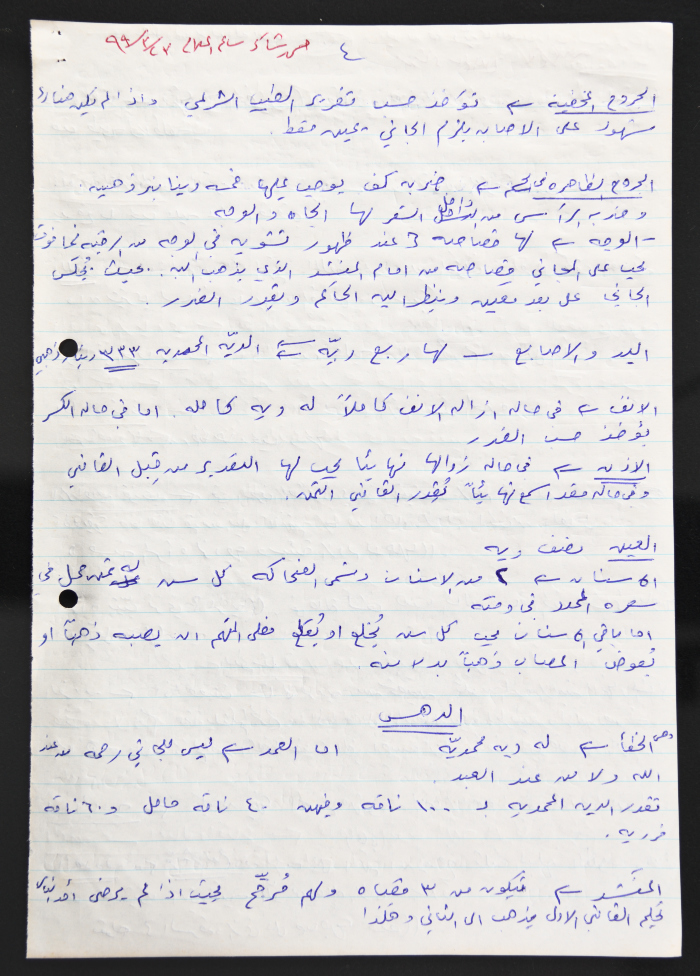 ٤
الجروح المخفية ے تؤخذ حسب تقرير الطبيب الشرعي واذا لم تكن هنالك
شهود على الاصابه يلزم الجاني يمين فقط.
الجروح الظاهره في الجسم ے ضربه كف يوجب عليها خمسه دينا نير ذهبيه.
و ضربه الرأس من داخل الشعر لها الجاه و الوجه
- الوجه ے لها قصاصه 3 عند ظهور تشويه في الوجه من الرقبه فما فوق
يجب على الجاني قصاصه من امام المنشد الذي يذهب اليه. بحيث يُجلس
الجاني على بعد معين وينظر اليه الحاكم ويقدر الضرر.
اليد والاصابع ے لها ربع ديّه الديّه المحمديه ٣٣٣ دينار ذهبي
الانف ے في حاله ازاله الانف كاملاً له ديه كامله. اما في حاله الكسر
يؤخذ حسب الضرر
الاذن ے في حاله زوالها نهائياً يجب لها التقدير من قِبل القاضي
وفي حاله فقد السمع نهائياً يُقدر القاضي الثمن.
العين نصف ديه
الاسنان ے ٢ من الاسنان وتسمى الضحاكه كل سن له ثمن جمل في
سعره المحدد في وقته
اما باقي الاسنان يجب كل سن يُخلع او يُقلع فعلى المتهم ان يصبه ذهباً او
يُعوض المصاب ذهباً بدلا منه.
الدهس
دهس الخطأ ے له ديه محمديّه اما العمد ے ليس للجاني رحمه من عند
الله ولا من عند العبد.
تقدر الديه المحمديه بـ ١٠٠ ناقه ومنهن ٤٠ ناقه حامل و ٦٠ ناقه
المنشد ے يتكون من ٣ قضاه ولهم مُرجّح بحيث اذا لم يرضى احد
بحكم القاضي الاول يذهب الى الثاني وهكذا